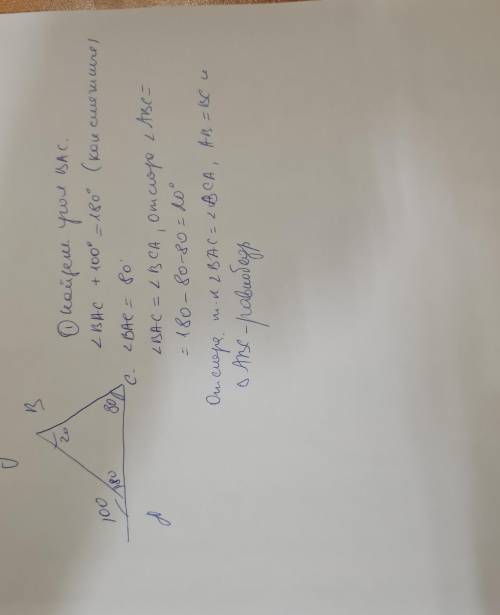 ① Найдем угол BAC.
∠BAC + 100° = 180° (как смежные)
∠BAC = 80°
∠BAC = ∠BCA, отсюда ∠ABC =
= 180 - 80 - 80 = 20°
Отсюда т.к ∠BAC = ∠BCA, AB = BC и
△ABC - равнобедр
B
20
C.
80
80
100
A